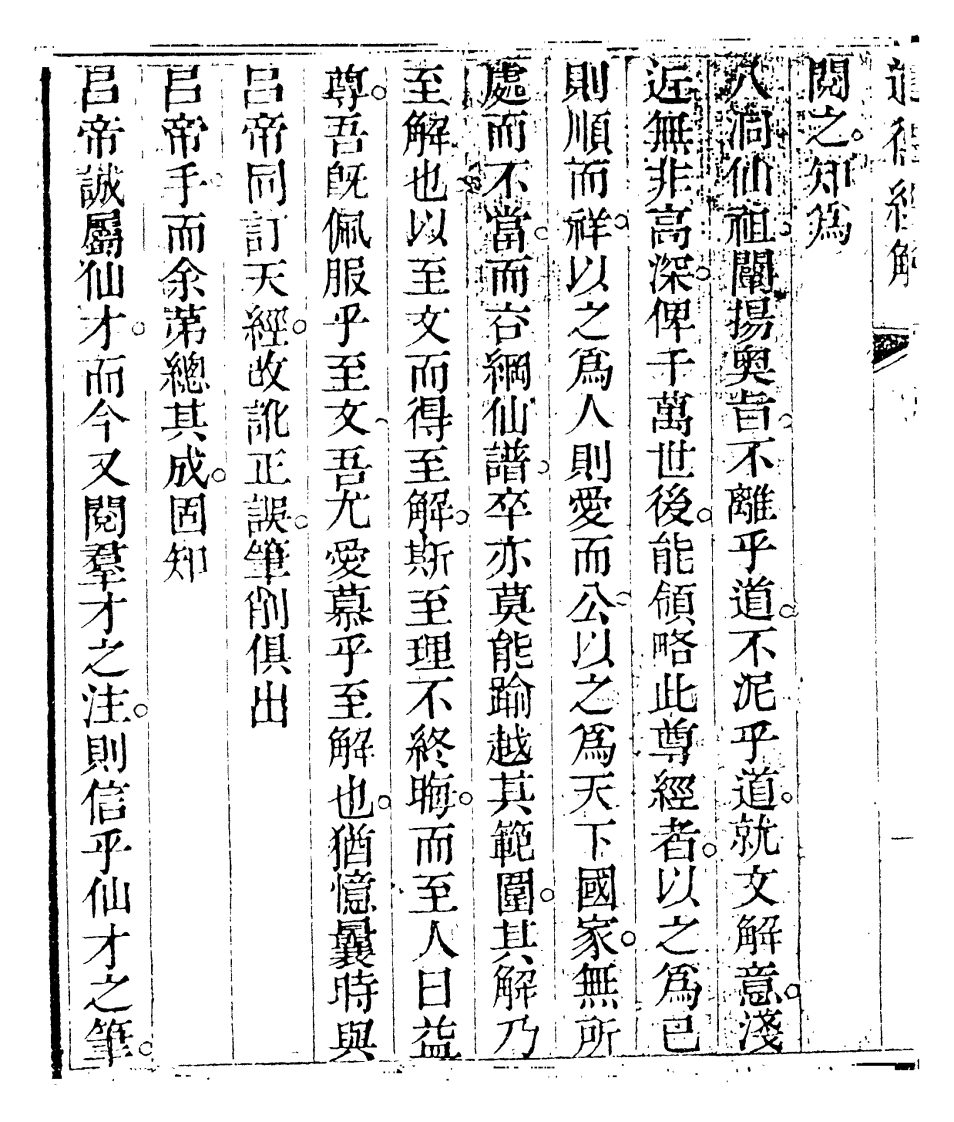 道德經解 一
閱之。知爲
八洞仙祖。闡揚奧旨。不離乎道。不泥乎道。就文解意。淺
近無非高深。俾千萬世後。能領略此尊經者。以之爲已
則順而祥。以之爲人則愛而公。以之爲天下國家。無所
處而不當。而谷綱仙譜。卒亦莫能踰越其範圍。其解乃
至解也以至文而得至解。斯至理不終晦。而至人日益
尊。吾旣佩服乎至文、吾尤愛慕乎至解也。猶憶曩時與
呂帝同訂天經。改訛正誤。筆削俱出
呂帝手。而余第總其成。固知
呂帝誠屬仙才。而今又閱羣才之注。則信乎仙才之筆。